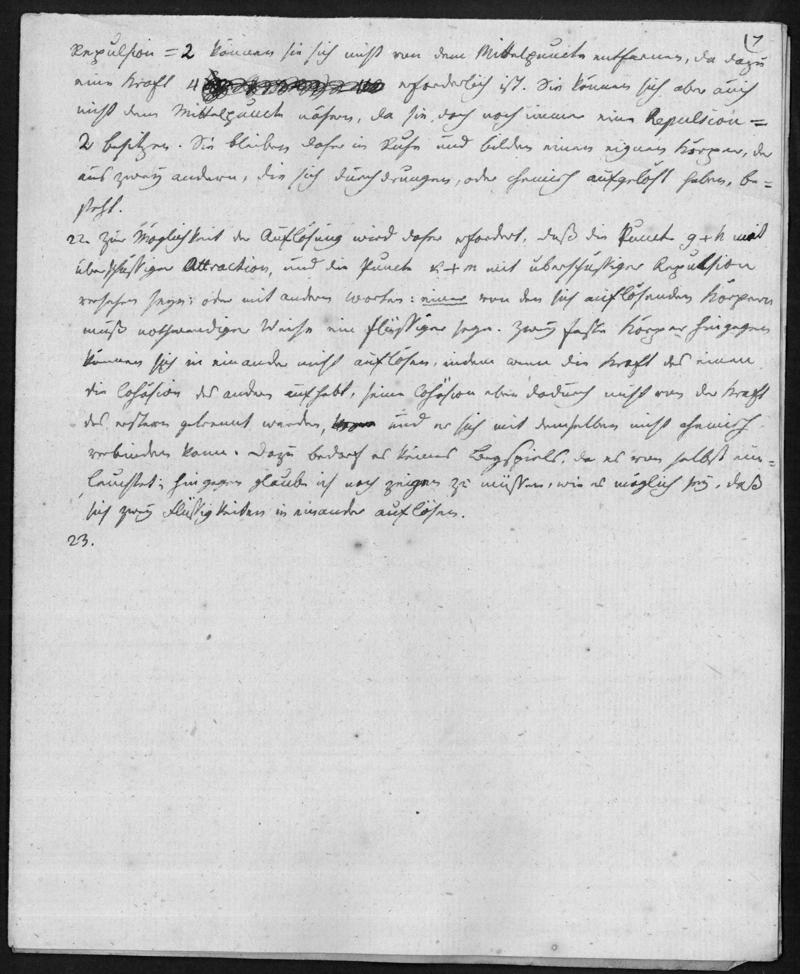 17
Repulsion = 2 können sie sich nicht von dem Mittelpuncte entfernen, da dazu
eine Kraft 4 erforderlich ist. Sie können sich aber auch
nicht dem Mittelpuncte nähern, da sie doch noch immer eine Repulsion =
2 besitzen. Sie bleiben daher in Ruhe und bilden einen eignen Körper, der
aus zweÿ andern, die sich durchdrungen, oder chemisch aufgelöst haben, be=
steht.
22. Zur Möglichkeit der Auflösung wird daher erfordert, daß die Puncte g + h mit
überschüssiger Attraction, und die Puncte + m mit überschüssiger Repulsion
versehen seyn: oder mit andern Worten: einer von den sich auflösenden Körpern
muß nothwendiger Weise ein flüssiger seyn. Zweÿ feste Körper hingegen
können sich in einander nicht auflösen, indem wenn die Kraft des einen
die Cohäsion des andern aufhebt, seine Cohäsion eben dadurch nicht von der Kraft
des erstern getrennt werden, und er sich mit demselben nicht chemisch
verbinden kann. Dazu bedarf es keines Beyspiels, da es von selbst ein=
leuchtet; hingegen glaube ich noch zeigen zu müssen, wie es möglich sey, daß
sich zweÿ Flüssigkeiten in einander auflösen.
23.